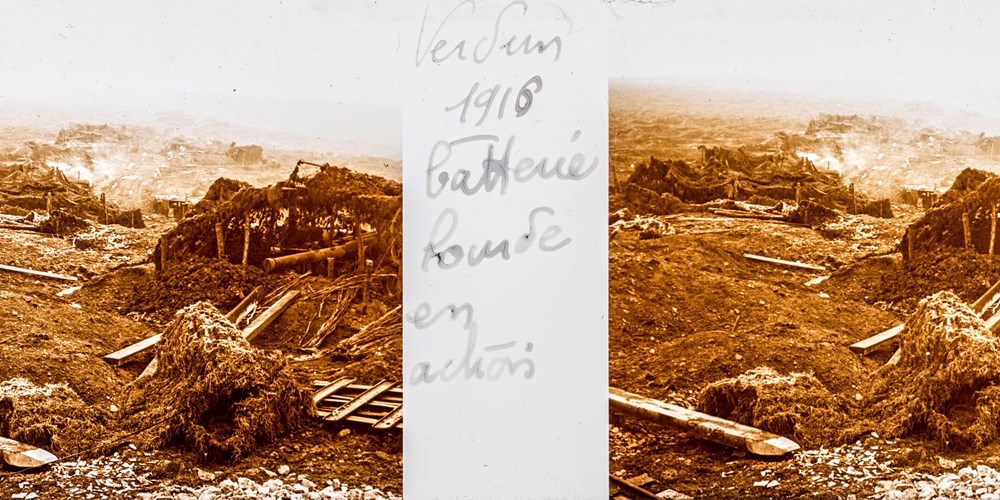 Verdun
1916
batterie
lourde
en
action